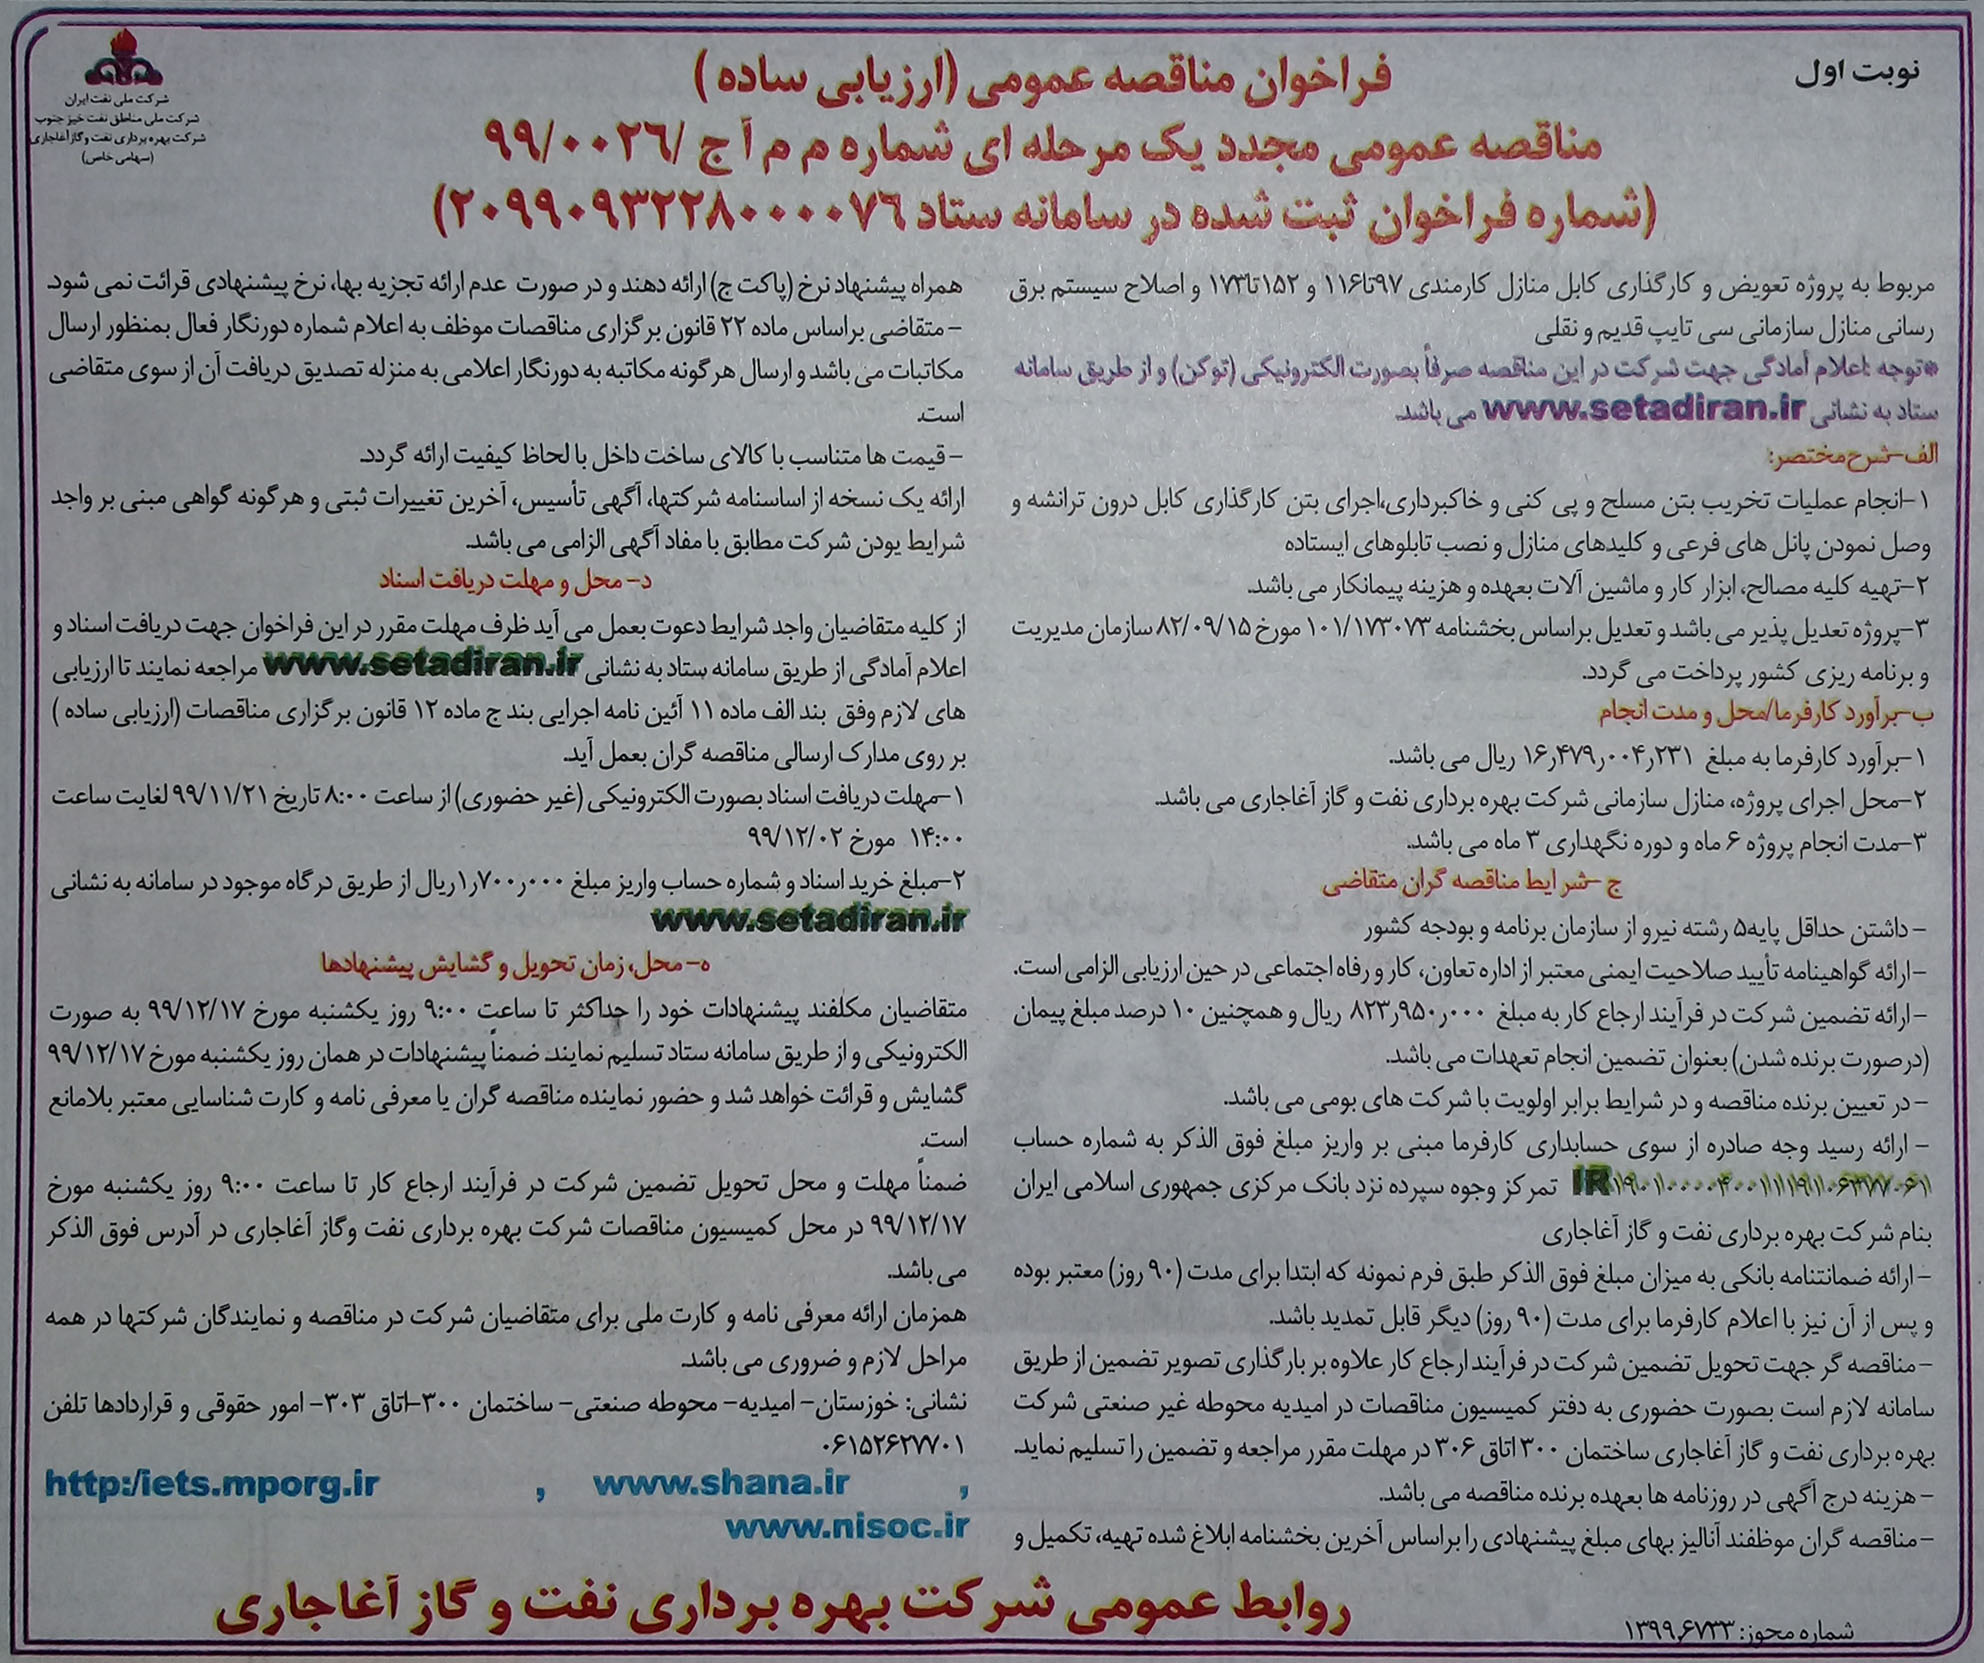 نوبت اول
شرکت ملی نفت ایران
شرکت ملی مناطق نفت خیز جنوب
شرکت بهره برداری نفت و گاز آغاجاری
(سهامی خاص)
فراخوان مناقصه عمومی (ارزیابی ساده )
مناقصه عمومی مجدد یک مرحله ای شماره م م آ ج /۹۹/۰۰۲۶
(شماره فراخوان ثبت شده در سامانه ستاد ۲۰۹۹۰۹۳۲۲۸۰۰۰۰۷۶)
مربوط به پروژه تعویض و کارگذاری کابل منازل کارمندی ۹۷تا۱۱۶ و ۱۵۲تا۱۷۳ و اصلاح سیستم برق
رسانی منازل سازمانی سی تایپ قدیم و نقلی
*توجه :اعلام آمادگی جهت شرکت در این مناقصه صرفاً بصورت الکترونیکی (توکن) و از طریق سامانه
ستاد به نشانی www.setadiran.ir می باشد.
الف-شرح مختصر:
۱-انجام عملیات تخریب بتن مسلح و پی کنی و خاکبرداری،اجرای بتن کارگذاری کابل درون ترانشه و
وصل نمودن پانل های فرعی و کلیدهای منازل و نصب تابلوهای ایستاده
۲-تهیه کلیه مصالح، ابزار کار و ماشین آلات بعهده و هزینه پیمانکار می باشد.
۳-پروژه تعدیل پذیر می باشد و تعدیل براساس بخشنامه ۱۰۱/۱۷۳۰۷۳ مورخ ۸۲/۰۹/۱۵ سازمان مدیریت
و برنامه ریزی کشور پرداخت می گردد.
ب-برآورد کارفرما/محل و مدت انجام
۱-برآورد کارفرما به مبلغ ۱۶٫۴۷۹٫۰۰۴٫۲۳۱ ریال می باشد.
۲-محل اجرای پروژه، منازل سازمانی شرکت بهره برداری نفت و گاز آغاجاری می باشد.
۳-مدت انجام پروژه ۶ ماه و دوره نگهداری ۳ ماه می باشد.
ج -شرایط مناقصه گران متقاضی
- داشتن حداقل پایه۵ رشته نیرو از سازمان برنامه و بودجه کشور
-ارائه گواهینامه تأیید صلاحیت ایمنی معتبر از اداره تعاون، کار و رفاه اجتماعی در حین ارزیابی الزامی است.
-ارائه تضمین شرکت در فرآیند ارجاع کار به مبلغ ۸۲۳٫۹۵۰٫۰۰۰ ریال و همچنین ۱۰ درصد مبلغ پیمان
(درصورت برنده شدن) بعنوان تضمین انجام تعهدات می باشد.
- در تعیین برنده مناقصه و در شرایط برابر اولویت با شرکت های بومی می باشد.
- ارائه رسید وجه صادره از سوی حسابداری کارفرما مبنی بر واریز مبلغ فوق الذکر به شماره حساب
IR۱۹۰۱۰۰۰۰۴۰۰۱۱۱۹۱۰۶۳۷۷۰۶۱ تمرکز وجوه سپرده نزد بانک مرکزی جمهوری اسلامی ایران
بنام شرکت بهره برداری نفت و گاز آغاجاری
-ارائه ضمانتنامه بانکی به میزان مبلغ فوق الذکر طبق فرم نمونه که ابتدا برای مدت (۹۰ روز) معتبر بوده
و پس از آن نیز با اعلام کارفرما برای مدت (۹۰ روز) دیگر قابل تمدید باشد.
-مناقصه گر جهت تحویل تضمین شرکت در فرآیند ارجاع کار علاوه بر بارگذاری تصویر تضمین از طریق
سامانه لازم است بصورت حضوری به دفتر کمیسیون مناقصات در امیدیه محوطه غیر صنعتی شرکت
بهره برداری نفت و گاز آغاجاری ساختمان ۳۰۰ اتاق ۳۰۶ در مهلت مقرر مراجعه و تضمین را تسلیم نماید.
- هزینه درج آگهی در روزنامه ها بعهده برنده مناقصه می باشد.
-مناقصه گران موظفند آنالیز بهای مبلغ پیشنهادی را براساس آخرین بخشنامه ابلاغ شده تهیه، تکمیل و
همراه پیشنهاد نرخ (پاکت ج) ارائه دهند و در صورت عدم ارائه تجزیه بها، نرخ پیشنهادی قرائت نمی شود.
-متقاضی براساس ماده ۲۲ قانون برگزاری مناقصات موظف به اعلام شماره دورنگار فعال بمنظور ارسال
مکاتبات می باشد و ارسال هر گونه مکاتبه به دورنگار اعلامی به منزله تصدیق دریافت آن از سوی متقاضی
است.
- قیمت ها متناسب با کالای ساخت داخل با لحاظ کیفیت ارائه گردد.
ارائه یک نسخه از اساسنامه شرکتها، آگهی تأسیس، آخرین تغییرات ثبتی و هرگونه گواهی مبنی بر واجد
شرایط بودن شرکت مطابق با مفاد آگهی الزامی می باشد.
د- محل و مهلت دریافت اسناد
از کلیه متقاضیان واجد شرایط دعوت بعمل می آید ظرف مهلت مقرر در این فراخوان جهت دریافت اسناد و
اعلام آمادگی از طریق سامانه ستاد به نشانی www.setadiran.ir مراجعه نمایند تا ارزیابی
های لازم وفق بند الف ماده ۱۱ آئین نامه اجرایی بند ج ماده ۱۲ قانون برگزاری مناقصات (ارزیابی ساده )
بر روی مدارک ارسالی مناقصه گران بعمل آید.
۱-مهلت دریافت اسناد بصورت الکترونیکی (غیر حضوری) از ساعت ۸:۰۰ تاریخ ۹۹/۱۱/۲۱ لغایت ساعت
۱۴:۰۰ مورخ ۹۹/۱۲/۰۲
۲-مبلغ خرید اسناد و شماره حساب واریز مبلغ ۱٫۷۰۰٫۰۰۰ریال از طریق درگاه موجود در سامانه به نشانی
www.setadiran.ir
ه- محل، زمان تحویل و گشایش پیشنهادها
متقاضیان مکلفند پیشنهادات خود را حداکثر تا ساعت ۹:۰۰ روز یکشنبه مورخ ۹۹/۱۲/۱۷ به صورت
الکترونیکی و از طریق سامانه ستاد تسلیم نمایند. ضمناً پیشنهادات در همان روز یکشنبه مورخ ۹۹/۱۲/۱۷
گشایش و قرائت خواهد شد و حضور نماینده مناقصه گران یا معرفی نامه و کارت شناسایی معتبر بلامانع
است.
ضمناً مهلت و محل تحویل تضمین شرکت در فرآیند ارجاع کار تا ساعت ۹:۰۰ روز یکشنبه مورخ
۹۹/۱۲/۱۷ در محل کمیسیون مناقصات شرکت بهره برداری نفت وگاز آغاجاری در آدرس فوق الذکر
می باشد.
همزمان ارائه معرفی نامه و کارت ملی برای متقاضیان شرکت در مناقصه و نمایندگان شرکتها در همه
مراحل لازم و ضروری می باشد.
نشانی: خوزستان- امیدیه- محوطه صنعتی- ساختمان ۳۰۰-اتاق ۳۰۳- امور حقوقی و قراردادها تلفن
۰۶۱۵۲۶۲۷۷۰۱
http:/iets.mporg.ir , www.shana.ir ,
www.nisoc.ir
روابط عمومی شرکت بهره برداری نفت و گاز آغاجاری
شماره مجوز: ۱۳۹۹٫۶۷۳۳